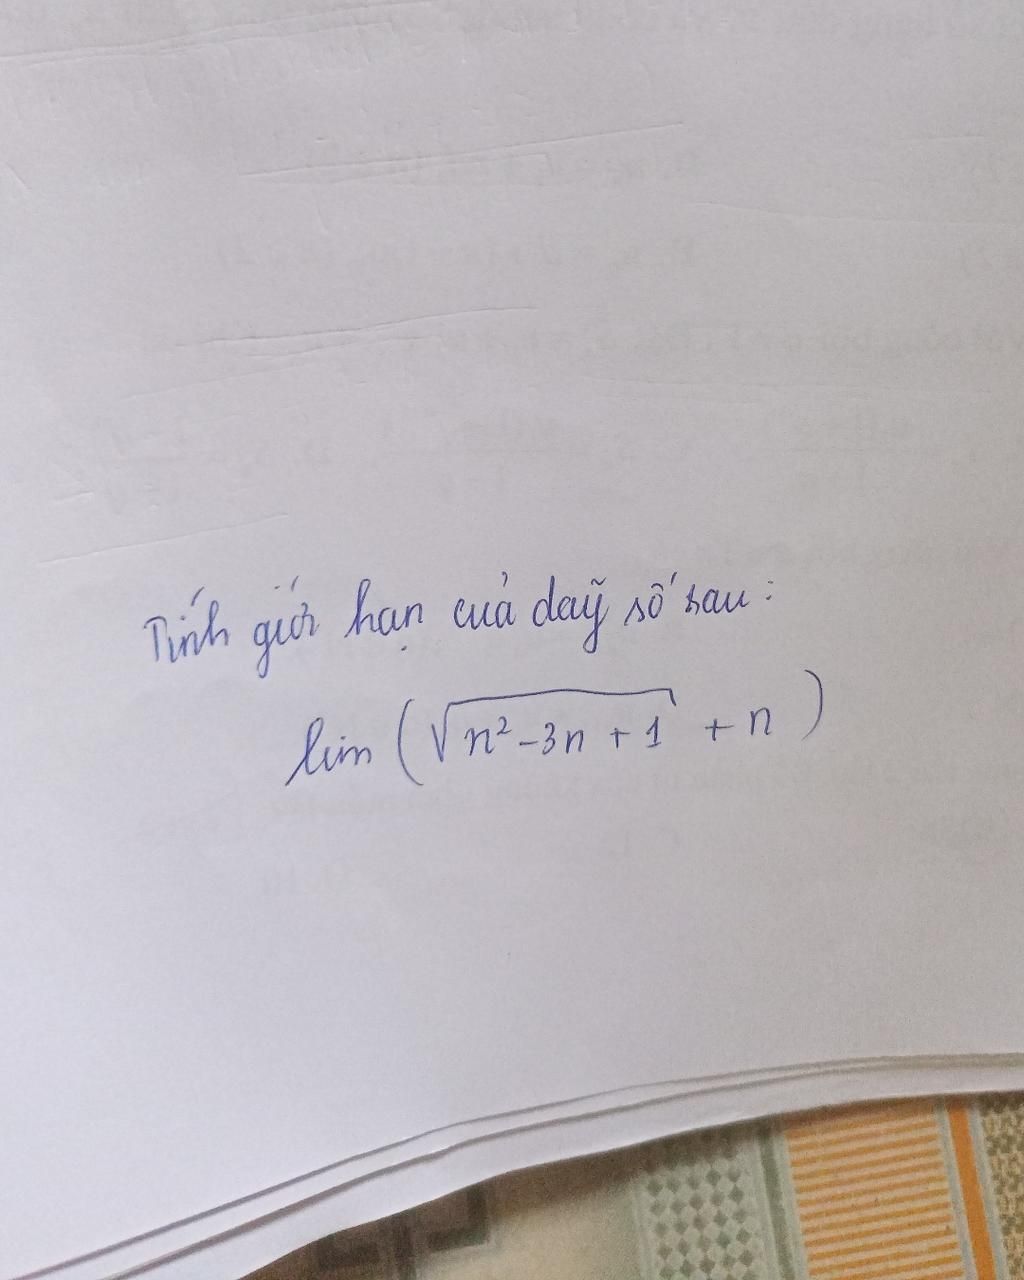 Tính giới hạn của dãy số sau:
lim (√(n² - 3n + 1) + n)